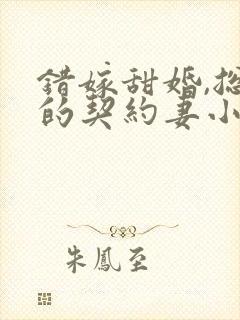 错嫁甜婚,总
的契約妻小
朱鳳至